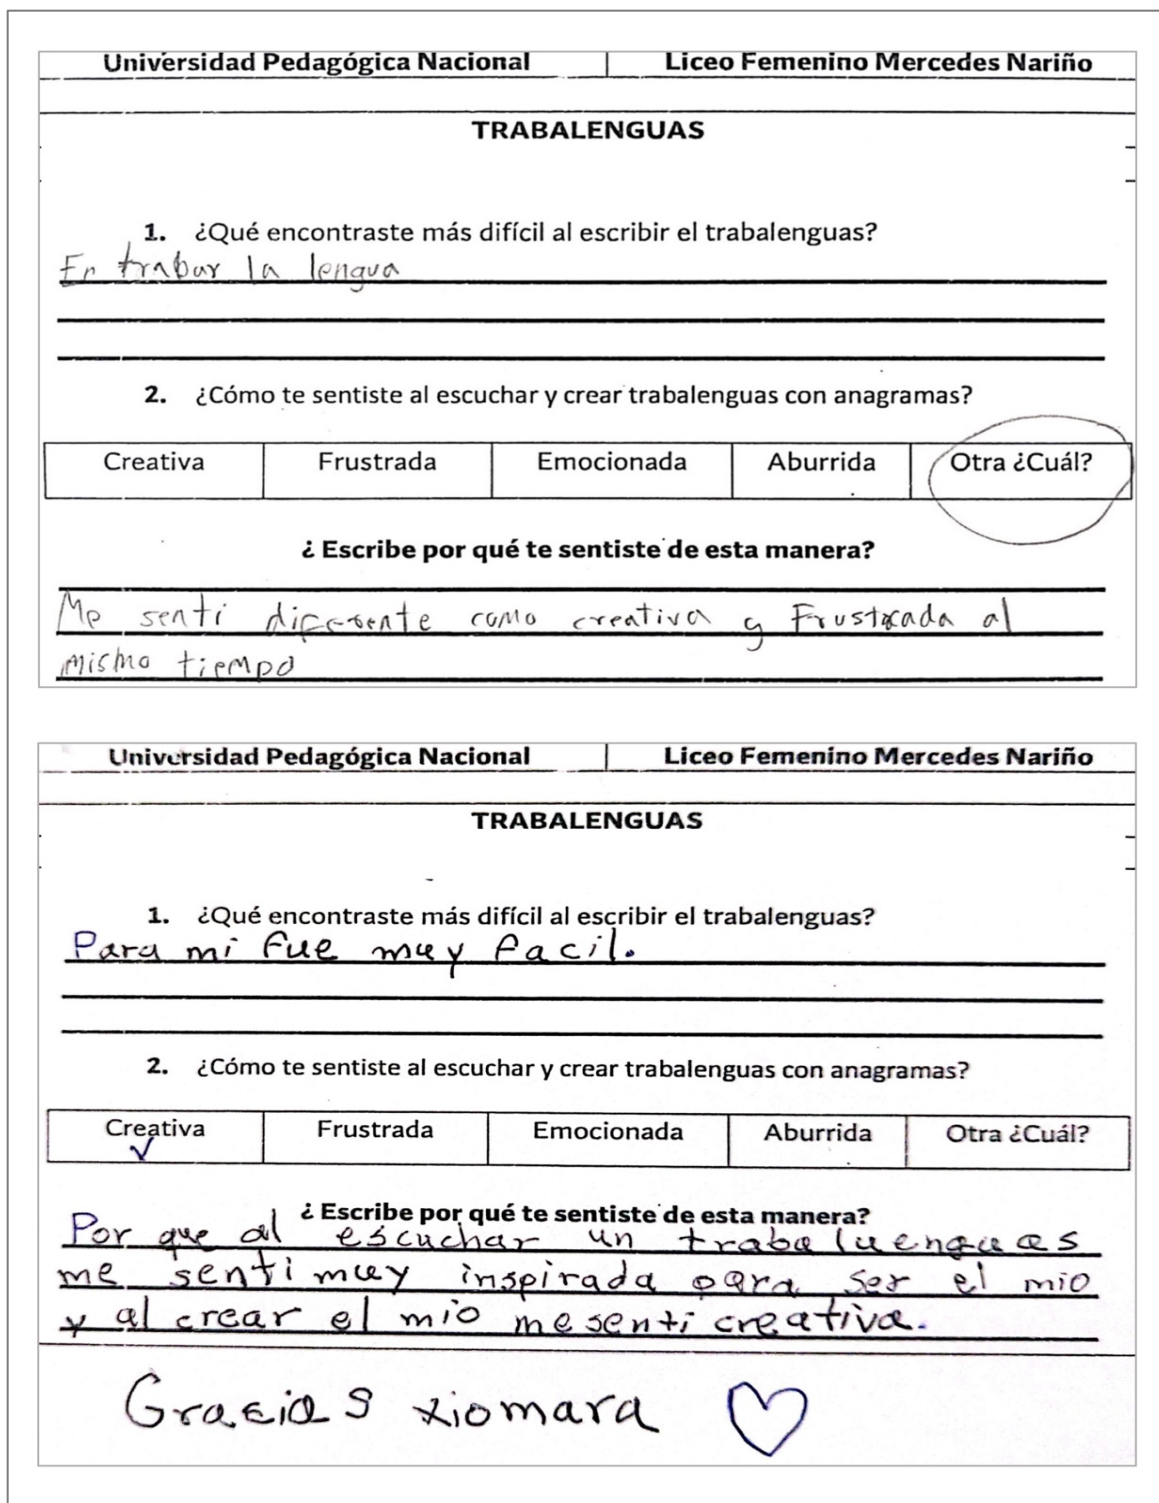 Universidad Pedagógica Nacional Liceo Femenino Mercedes Nariño
TRABALENGUAS
1. ¿Qué encontraste más difícil al escribir el trabalenguas?
En trabar la lengua
2. ¿Cómo te sentiste al escuchar y crear trabalenguas con anagramas?
Creativa Frustrada Emocionada Aburrida Otra ¿Cuál?
¿ Escribe por qué te sentiste de esta manera?
Me senti diferente como creativa y Frustrada al
mismo tiempo
Universidad Pedagógica Nacional Liceo Femenino Mercedes Nariño
TRABALENGUAS
1. ¿Qué encontraste más difícil al escribir el trabalenguas?
Para mi fue muy facil.
2. ¿Cómo te sentiste al escuchar y crear trabalenguas con anagramas?
Creativa Frustrada Emocionada Aburrida Otra ¿Cuál?
¿ Escribe por qué te sentiste de esta manera?
Por que al escuchar un trabaluenguas
me senti muy inspirada para ser el mio
y al crear el mio me senti creativa.
Gracias xiomara